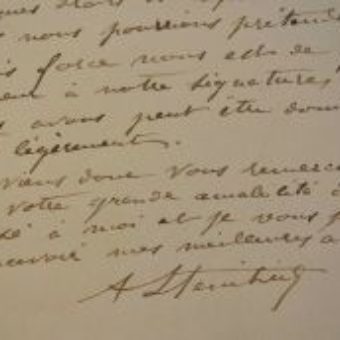 ques
nous pourrions prétendre
force nous est de
à notre signature,
avons peut être donn
légèrement.
viens donc vous remerci
votre grande amabilité
à moi et je vous p
mes meilleures a
A Steinheil